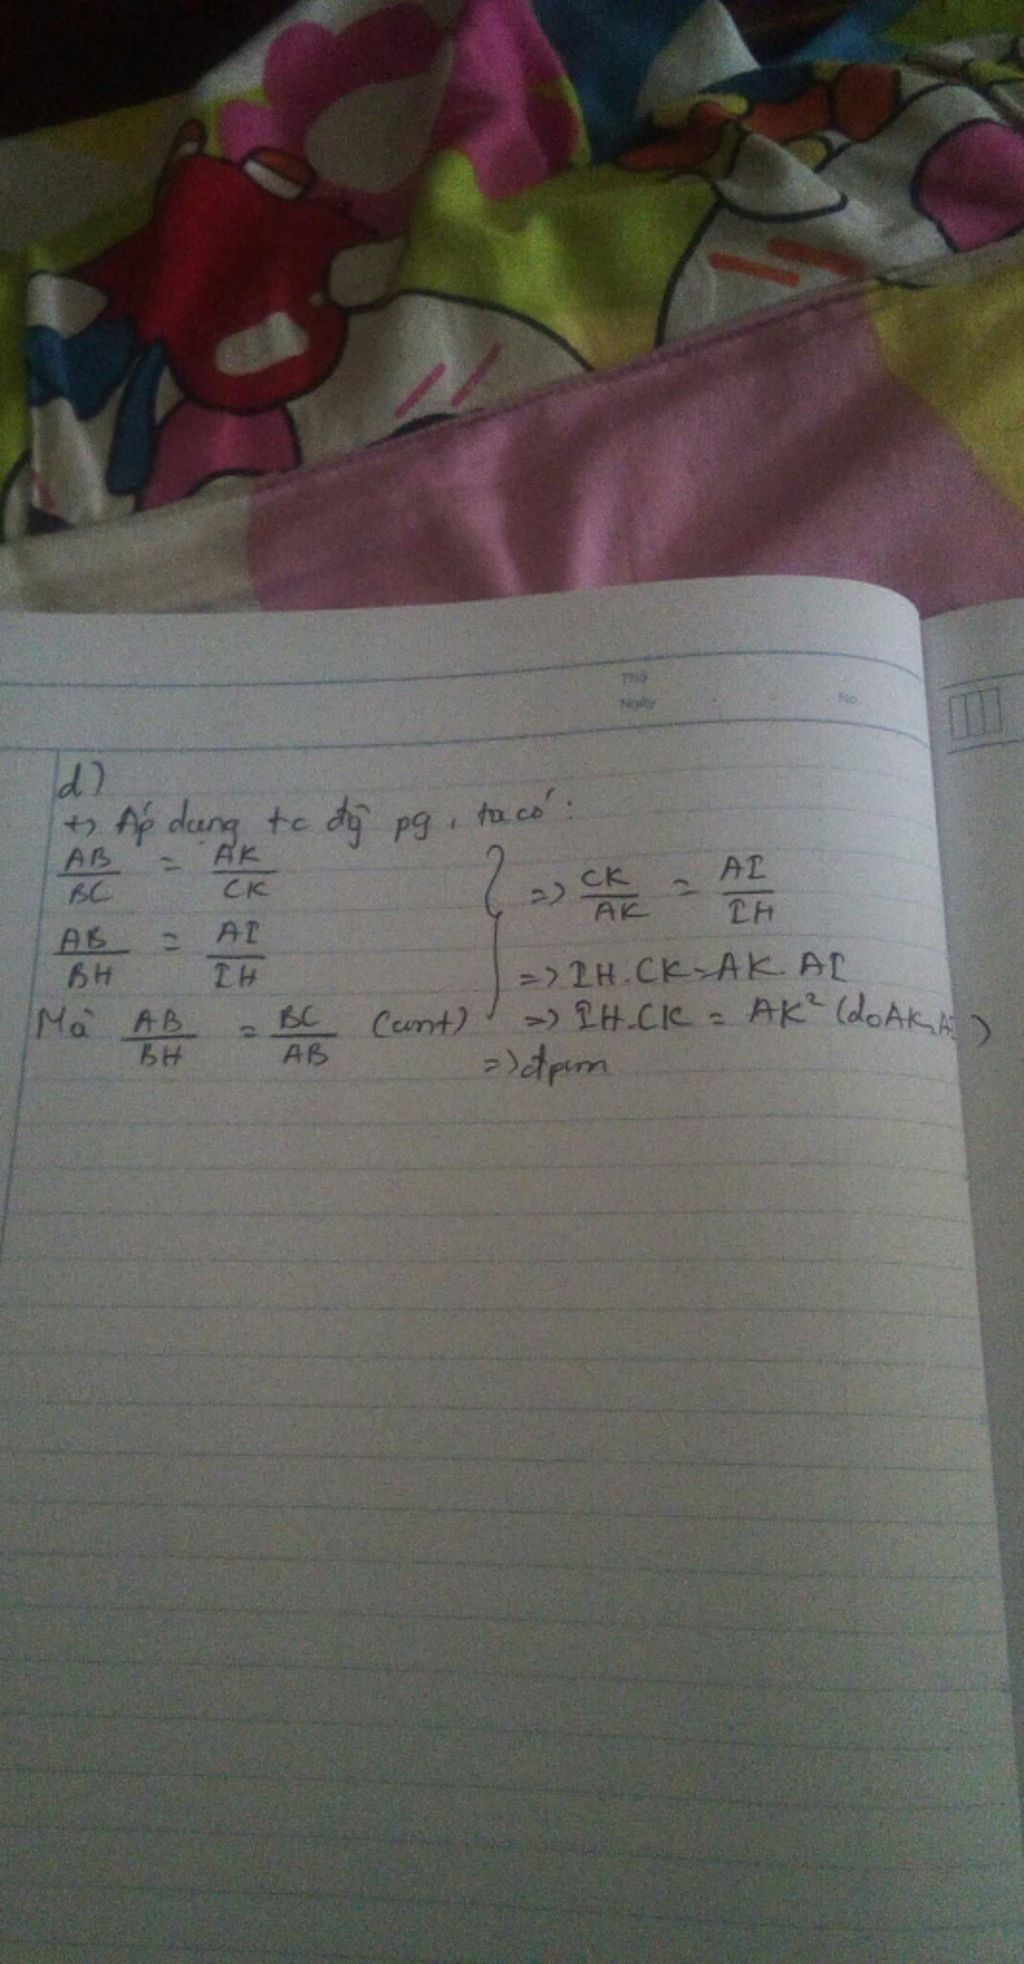 Thứ
Ngày
No.
d)
+) Áp dụng tc đg pg, ta có:
AB/BC = AK/CK
AB/BH = AI/IH
Mà AB/BH = BC/AB (cmt)
=> CK/AK = AI/IH
=> IH.CK = AK.AI
=> IH.CK = AK² (do AK=AI)
=> đpcm